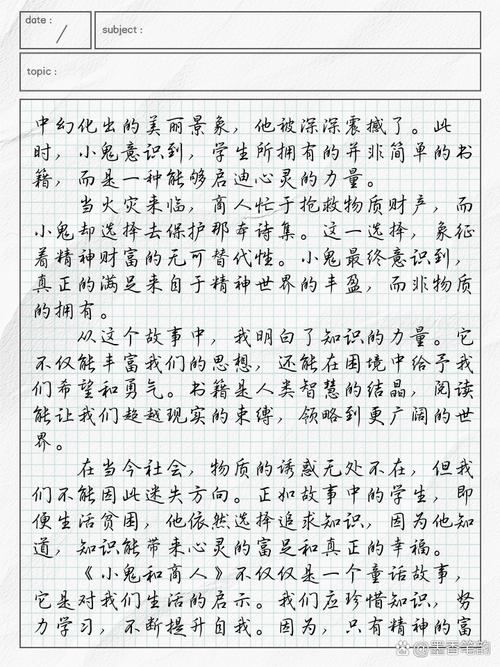 date :
subject :
topic :
中幻化出的美丽景象，他被深深震撼了。此
时，小鬼意识到，学生所拥有的并非简单的书
籍，而是一种能够启迪心灵的力量。
当火灾来临，商人忙于抢救物质财产，而
小鬼却选择去保护那本诗集。这一选择，象征
着精神财富的无可替代性。小鬼最终意识到，
真正的满足来自于精神世界的丰盈，而非物质
的拥有。
从这个故事中，我明白了知识的力量。它
不仅能丰富我们的思想，还能在困境中给予我
们希望和勇气。书籍是人类智慧的结晶，阅读
能让我们超越现实的束缚，领略到更广阔的世
界。
在当今社会，物质的诱惑无处不在，但我
们不能因此迷失方向。正如故事中的学生，即
便生活贫困，他依然选择追求知识，因为他知
道，知识能带来心灵的富足和真正的幸福。
《小鬼和商人》不仅仅是一个童话故事，
它是对我们生活的启示。我们应珍惜知识，努
力学习，不断提升自我。因为，只有精神的富
墨香笔韵